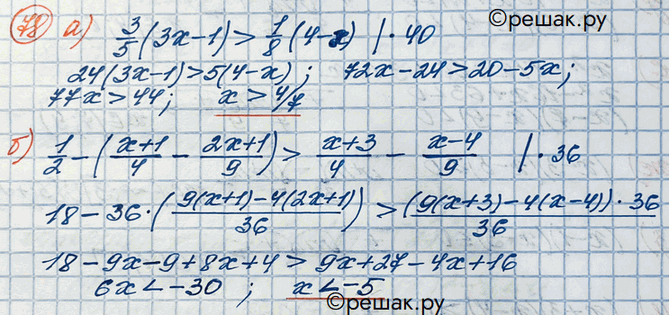 ©решак.ру
78 а) 3/5 (3x-1) > 1/8 (4-x) | · 40
24(3x-1)>5(4-x); 72x-24>20-5x;
77x>44; x>4/7
б) 1/2 - ((x+1)/4 - (2x+1)/9) > (x+3)/4 - (x-4)/9 | · 36
18-36·((9(x+1)-4(2x+1))/36) > ((9(x+3)-4(x-4))·36)/36
18-9x-9+8x+4>9x+27-4x+16
6x<-30; x<-5
©решак.ру